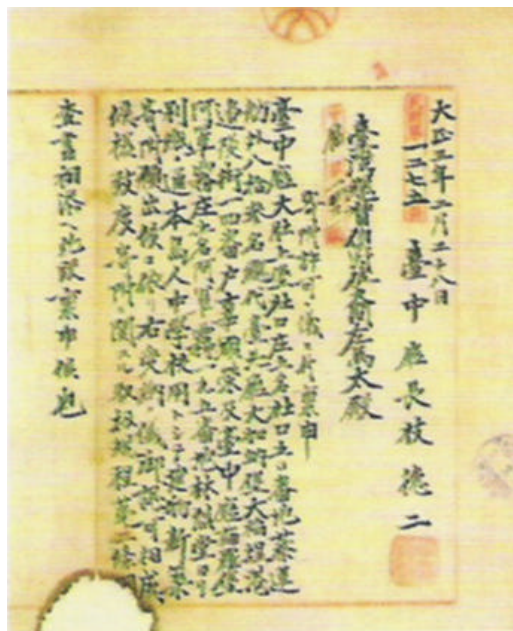 大正三年二月二十八日
一二七五 臺中廳長枝德二
臺灣總督伯爵佐久間左馬太殿
寄附許可ノ儀ニ付稟申
臺中廳大肚上堡社口庄土名社口土口番地蔡蓮
舫外八拾 名總代臺中廳大加蚋堡大稻埕港
邊後街一四番戶辜顯榮及臺中廳貓羅堡
阿罩霧庄土名阿罩霧 番地林獻堂ヨリ
別紙ノ通本島人中學校用トシテ建物新築
寄附願出候ニ依リ右受納ノ儀御認可相成
候樣致度寄附ニ關スル取扱規程第二條
查書相添ヘ此段稟申候也